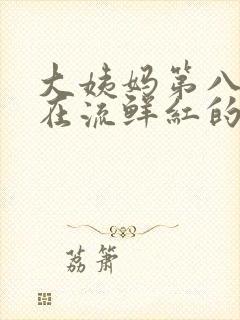 大姨妈第八
在流鲜红的
荔箫